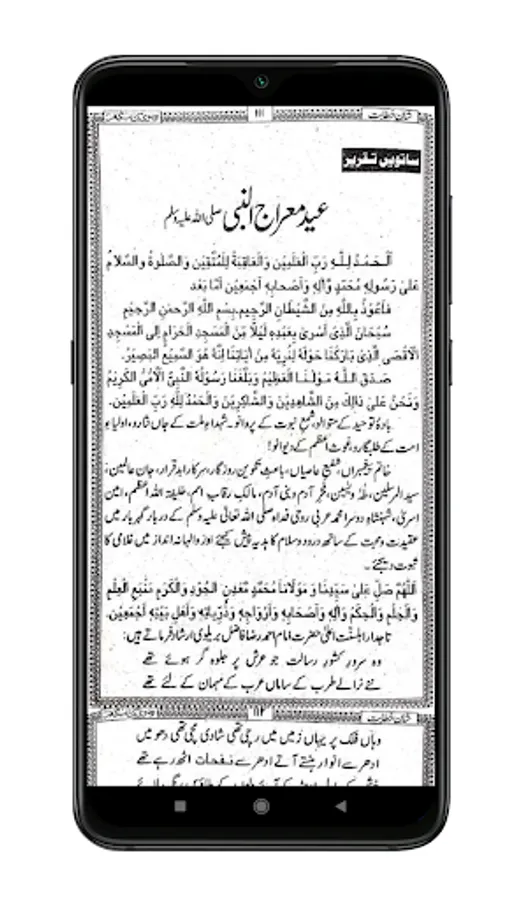 شان خطابت
۱۱۱
ساتویں تقریر
عید معراج النبی صلی اللہ علیہ وسلم
اَلْحَمْدُ لِلّٰهِ رَبِّ الْعٰلَمِيْنَ وَالْعَاقِبَةُ لِلْمُتَّقِيْنَ وَالصَّلٰوةُ وَالسَّلَامُ
عَلٰى رَسُوْلِهٖ مُحَمَّدٍ وَّاٰلِهٖ وَاَصْحَابِهٖ اَجْمَعِيْنَ اَمَّا بَعْد
فَاَعُوْذُ بِاللّٰهِ مِنَ الشَّيْطَانِ الرَّجِيْمِ۔ بِسْمِ اللّٰهِ الرَّحْمٰنِ الرَّحِيْمِ
سُبْحَانَ الَّذِىْ اَسْرٰى بِعَبْدِهٖ لَيْلًا مِّنَ الْمَسْجِدِ الْحَرَامِ اِلَى الْمَسْجِدِ
الْاَقْصَى الَّذِىْ بَارَكْنَا حَوْلَهٗ لِنُرِيَهٗ مِنْ اٰيَاتِنَا اِنَّهٗ هُوَ السَّمِيْعُ الْبَصِيْرُ۔
صَدَقَ اللّٰهُ مَوْلٰنَا الْعَظِيْمُ وَبَلَّغَنَا رَسُوْلُهُ النَّبِىُّ الْاُمِّىُّ الْكَرِيْمُ
وَنَحْنُ عَلٰى ذَالِكَ مِنَ الشَّاهِدِيْنَ وَالشَّاكِرِيْنَ وَالْحَمْدُ لِلّٰهِ رَبِّ الْعٰلَمِيْنَ۔
بادۂ توحید کے متوالو، شمع نبوت کے پروانو۔ شہدائے ملت کے جاں نثارو، اولیاء
امت کے طلبگارو، غوث اعظم کے دیوانو!
خاتم پیغمبراں، شفیع عاصیاں، باعث تکوین روزگار، سرکار ابد قرار، جان عالمین،
سید المرسلین، طٰہٰ و یٰسین، فخر آدم و بنی آدم، مالک رقاب امم، خلیفۃ اللہ اعظم، امین
اسریٰ، شہنشاہ دوسرا محمد عربی روحی فداہ صلی اللہ تعالیٰ علیہ وسلم کے دربار گہر بار میں
عقیدت و محبت کے ساتھ درود و سلام کا ہدیہ پیش کیجئے اور والہانہ انداز میں غلامی کا
ثبوت دیجئے۔
اَللّٰهُمَّ صَلِّ عَلٰى سَيِّدِنَا وَ مَوْلَانَا مُحَمَّدٍ مَّعْدِنِ الْجُوْدِ وَالْكَرَمِ مَنْبَعِ الْعِلْمِ
وَالْحِلْمِ وَالْحِكَمِ وَاٰلِهٖ وَاَصْحَابِهٖ وَاَزْوَاجِهٖ وَذُرِّيَاتِهٖ وَاَهْلِ بَيْتِهٖ اَجْمَعِيْنَ۔
تاجدار اہلسنت اعلیٰ حضرت امام احمد رضا فاضل بریلوی ارشاد فرماتے ہیں:
وہ سرور کشور رسالت جو عرش پر جلوہ گر ہوئے تھے
نئے نرالے طرب کے ساماں عرب کے مہمان کے لئے تھے
شان خطابت
۱۱۲
وہاں فلک پر یہاں زمیں میں رچی تھی شادی مچی تھی دھومیں
ادھر سے انوار ہنستے آتے ادھر سے نفحات اٹھ رہے تھے